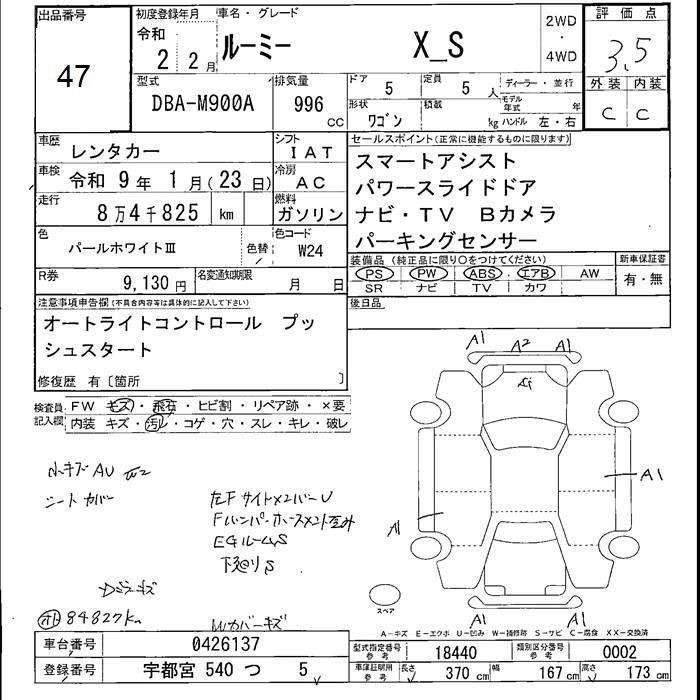 出品番号
47
初度登録年月
令和
2 2月
車名・グレード
ルーミー X_S
2WD
・
4WD
評価点
3.5
外装 内装
C C
型式
DBA-M900A
排気量
996
CC
ドア 5
定員 5 人
ディーラー・並行
形状 ワゴン
積載 kg
モデル年式 年
ハンドル 左・右
車歴 レンタカー
シフト IAT
車検 令和 9年 1月(23日)
冷房 AC
走行 8万4千825 km
燃料 ガソリン
色 パールホワイトⅢ
色替
色コード W24
R券 9,130円
名変通知期限 月 日
セールスポイント(正常に機能するものに限ります)
スマートアシスト
パワースライドドア
ナビ・TV Bカメラ
パーキングセンサー
装備品 (純正品に限り○をつけてください)
PS PW ABS エアB AW
SR ナビ TV カワ
新車保証書
有・無
後日品
注意事項申告欄(不具合内容等は具体的に記入して下さい)
オートライトコントロール プッ
シュスタート
修復歴 有〔箇所 〕
検査員記入欄
FW キズ・飛石・ヒビ割・リペア跡・×要
内装 キズ・汚レ・コゲ・穴・スレ・キレ・破レ
A1 A2 A1
A1
A1
A1 A1
小キズ AU
シートカバー
左F サイドメンバーU
EGルームS
下廻りS
84827km
スペア
A-キズ E-エクボ U-凹み W-補修跡 S-サビ C-腐食 XX-交換済
車台番号 0426137
登録番号 宇都宮 540 つ 5
型式指定番号 参考 18440
類別区分番号 参考 0002
車庫証明用 参考 長さ 370 cm 幅 167 cm 高さ 173 cm